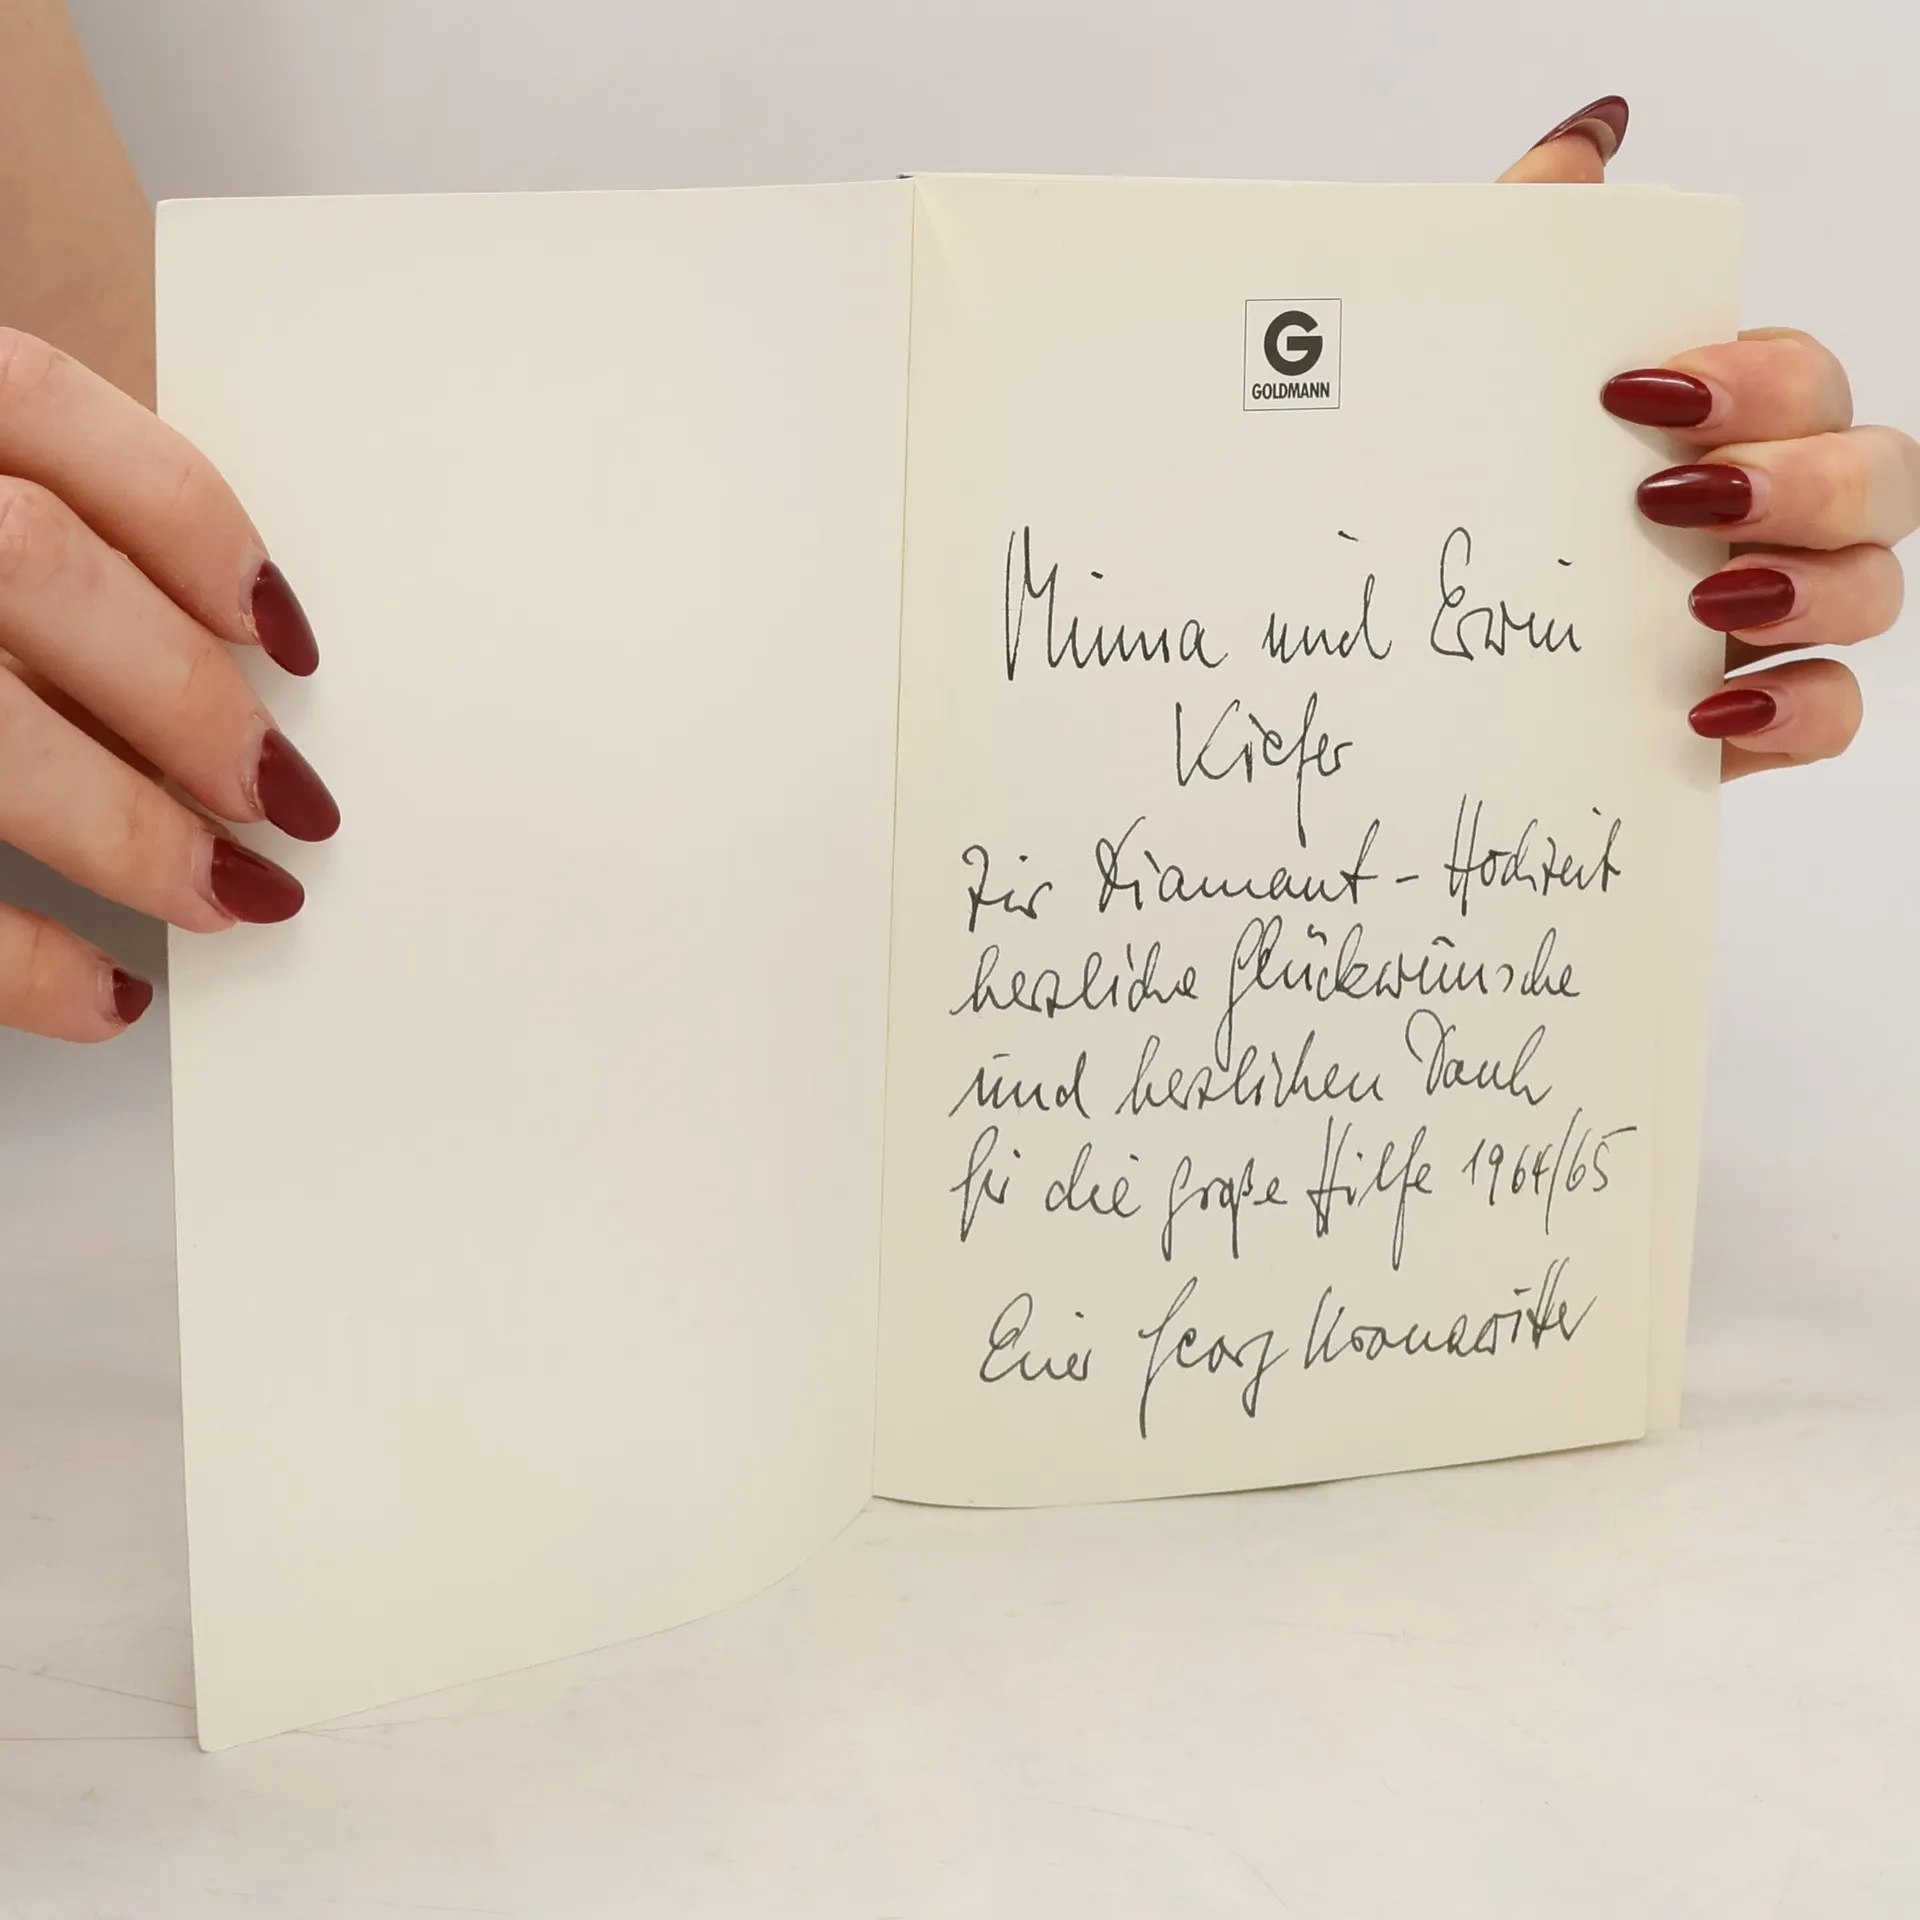 G
GOLDMANN
Minna und Erwin
Kiefer
Zur Diamant-Hochzeit
herzliche Glückwünsche
und herzlichen Dank
für die große Hilfe 1964/65
Euer Georg Kronawitter